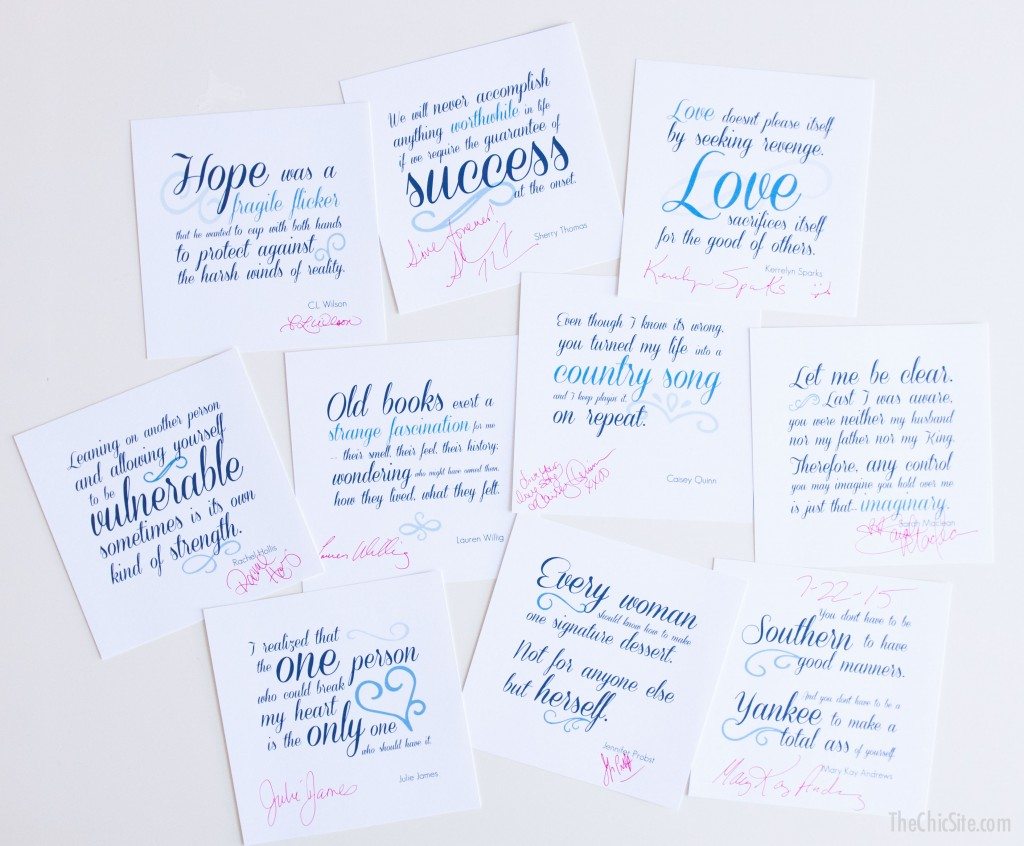 Hope was a
fragile flicker
that he wanted to cup with both hands
to protect against
the harsh winds of reality.
C.L. Wilson
C.L. Wilson
We will never accomplish
anything worthwhile in life
if we require the guarantee of
success
at the onset.
Sherry Thomas
Live forever!
Love doesnt please itself
by seeking revenge.
Love
sacrifices itself
for the good of others.
Kerrelyn Sparks
Kerrelyn Sparks
Leaning on another person
and allowing yourself
to be
vulnerable
sometimes is its own
kind of strength.
Rachel Hollis
Old books exert a
strange fascination for me
-- their smell, their feel, their history;
wondering who might have owned them,
how they lived, what they felt.
Lauren Willig
Lauren Willig
Even though I know its wrong,
you turned my life into a
country song
and I keep playin it
on repeat.
Caisey Quinn
XOXO
Let me be clear.
Last I was aware,
you were neither my husband
nor my father nor my King.
Therefore, any control
you may imagine you hold over me
is just that... imaginary.
Sarah Maclean
I realized that
the one person
who could break
my heart
is the only one
who should have it.
Julie James
Julie James
Every woman
should know how to make
one signature dessert.
Not for anyone else
but herself.
Jennifer Probst
7-22-15
You dont have to be
Southern to have
good manners.
And you dont have to be a
Yankee to make a
total ass of yourself.
Mary Kay Andrews
Mary Kay Andrews
TheChicSite.com